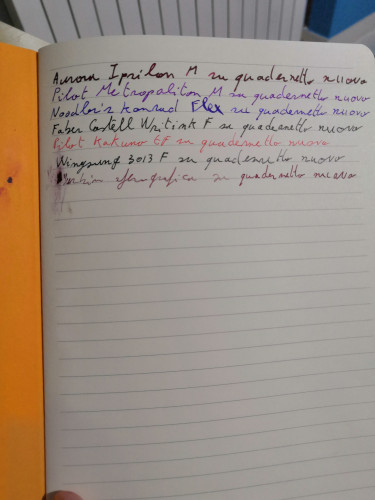 Aurora Ipsilon M su quadernetto nuovo
Pilot Metropolitan M su quadernetto nuovo
Noodler's Konrad Flex su quadernetto nuovo
Faber Castell Writink F su quadernetto nuovo
Pilot Kakuno EF su quadernetto nuovo
Wingsung 3013 F su quadernetto nuovo
su quadernetto nuovo